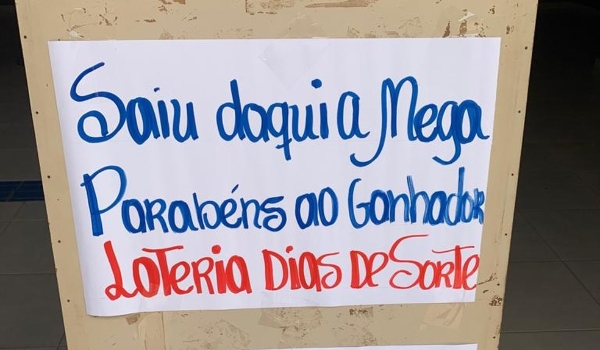 Saiu daqui a Mega
Parabéns ao Ganhador
Loteria Dias de Sorte